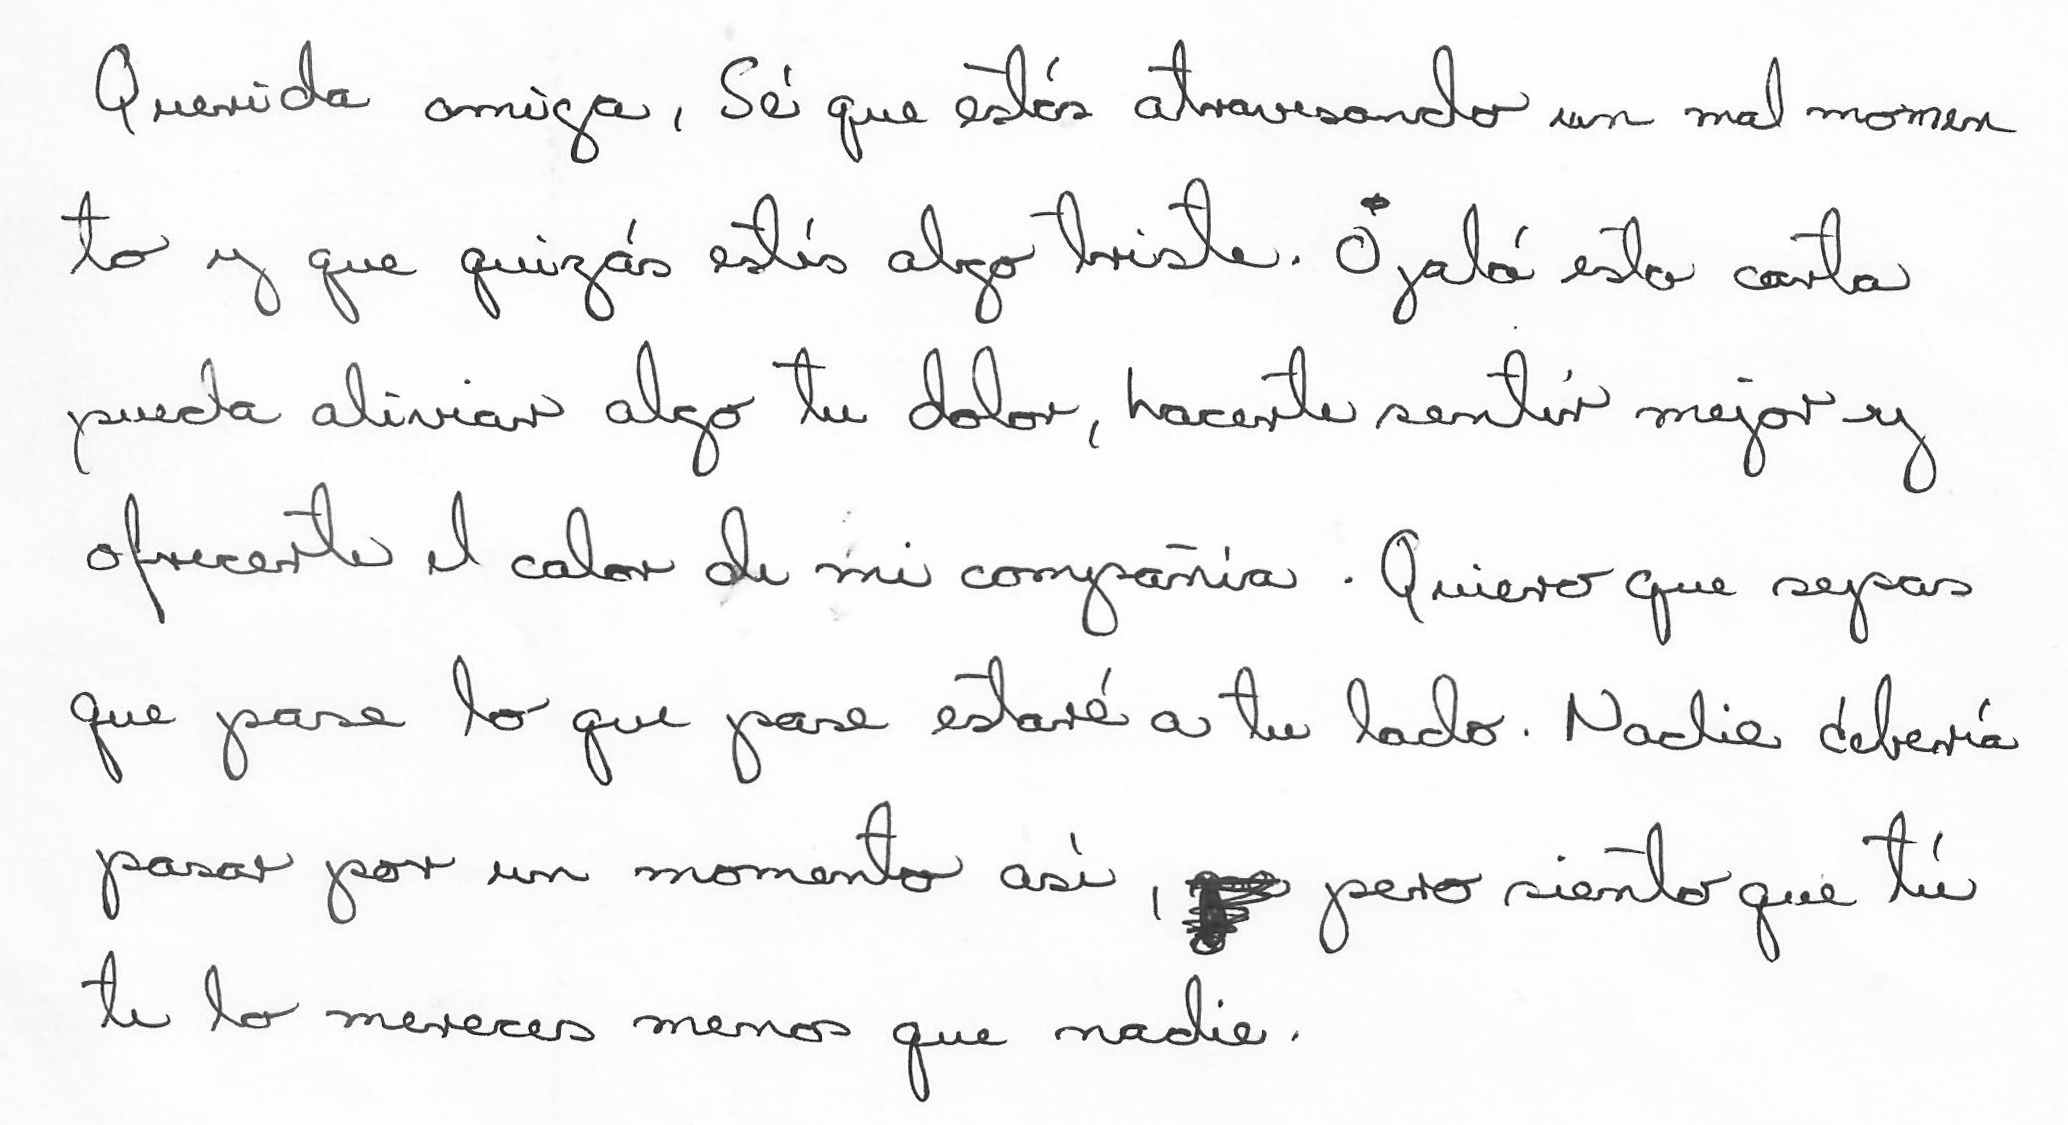 Querida amiga, Sé que estás atravesando un mal momen
to y que quizás estés algo triste. Ojalá esta carta
pueda aliviar algo tu dolor, hacerte sentir mejor y
ofrecerte el calor de mi compañía. Quiero que sepas
que pase lo que pase estaré a tu lado. Nadie debería
pasar por un momento así, pero siento que tú
te lo mereces menos que nadie.